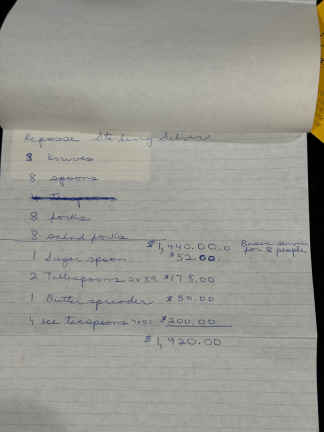 Repousse Sterling Silver
8 knives
8 spoons
8 forks
8 salad forks $1,440.00
for 8 people
1 Sugar spoon $52.00
2 Tablespoons $175.00
1 Butter spreader $50.00
4 ice teaspoons $200.00
$1,920.00